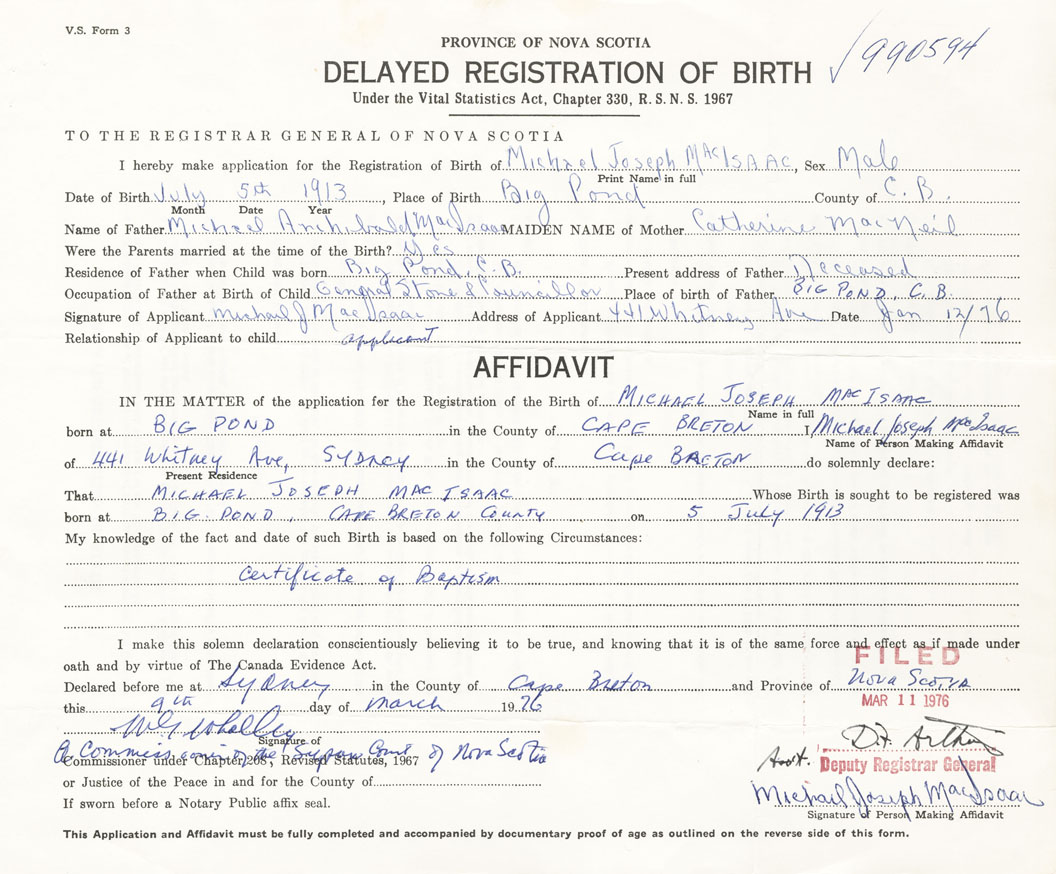 V.S. Form 3
PROVINCE OF NOVA SCOTIA
DELAYED REGISTRATION OF BIRTH
990594
Under the Vital Statistics Act, Chapter 330, R.S.N.S. 1967
TO THE REGISTRAR GENERAL OF NOVA SCOTIA
I hereby make application for the Registration of Birth of Michael Joseph MacISAAC, Sex Male
Print Name in full
Date of Birth July 5th 1913, Place of Birth Big Pond County of C.B.
Month Date Year
Name of Father Michael Archibald MacIsaac MAIDEN NAME of Mother Catherine MacNeil
Were the Parents married at the time of the Birth? Yes
Residence of Father when Child was born Big Pond, C.B. Present address of Father Deceased
Occupation of Father at Birth of Child General Store & Councillor Place of birth of Father BIG POND, C.B.
Signature of Applicant Michael J MacIsaac Address of Applicant 441 Whitney Ave Date Jan 12/76
Relationship of Applicant to child applicant
AFFIDAVIT
IN THE MATTER of the application for the Registration of the Birth of MICHAEL JOSEPH MACISAAC
Name in full
born at BIG POND in the County of CAPE BRETON I Michael Joseph MacIsaac
Name of Person Making Affidavit
of 441 Whitney Ave, SYDNEY in the County of Cape BRETON do solemnly declare:
Present Residence
That MICHAEL JOSEPH MACISAAC Whose Birth is sought to be registered was
born at BIG. POND, CAPE BRETON COUNTY on 5 July 1913
My knowledge of the fact and date of such Birth is based on the following Circumstances:
Certificate of Baptism
I make this solemn declaration conscientiously believing it to be true, and knowing that it is of the same force and effect as if made under
oath and by virtue of The Canada Evidence Act.
FILED
Declared before me at Sydney in the County of Cape Breton and Province of Nova Scotia
this 9th day of March 1976
MAR 11 1976
Signature of
A Commissioner of the Supreme Court of Nova Scotia
Commissioner under Chapter 208, Revised Statutes, 1967
D.H. Arthur
Asst. Deputy Registrar General
or Justice of the Peace in and for the County of
Michael Joseph MacIsaac
If sworn before a Notary Public affix seal.
Signature of Person Making Affidavit
This Application and Affidavit must be fully completed and accompanied by documentary proof of age as outlined on the reverse side of this form.